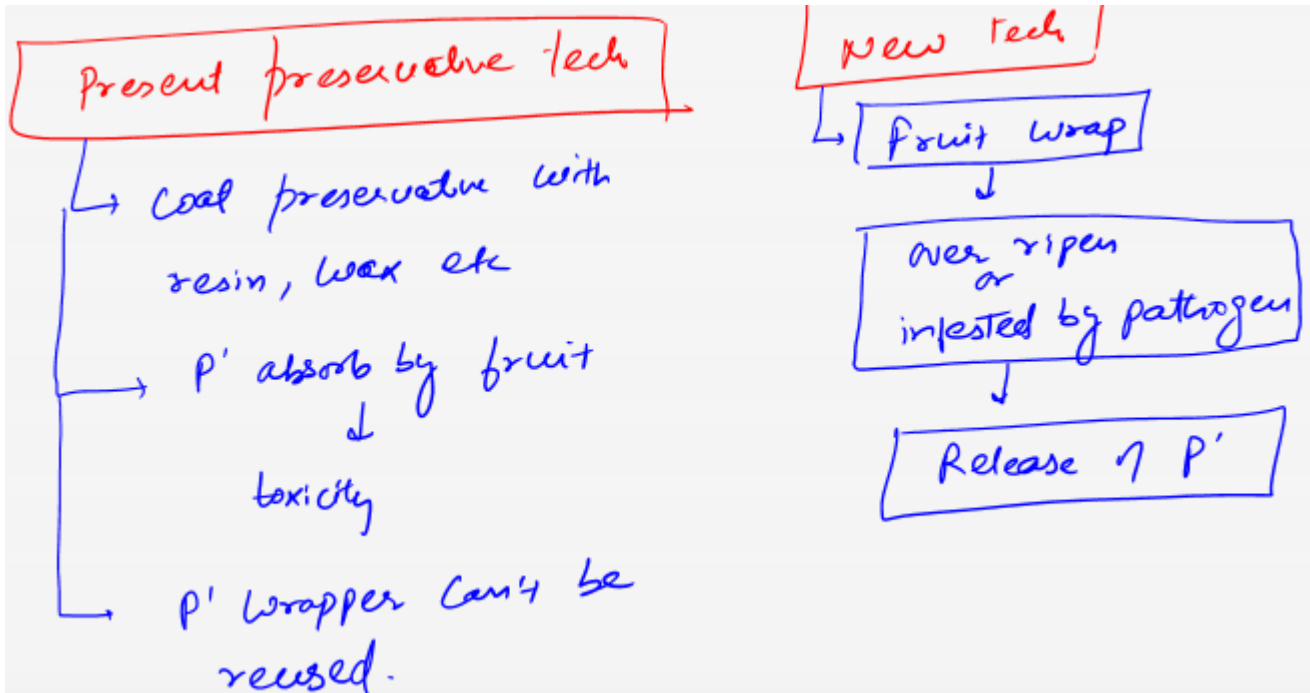 Present preservative tech
Coat preservative with
resin, wax etc
P' absorb by fruit
toxicity
P' wrapper can't be
reused.
New Tech
fruit wrap
over ripen
or
infested by pathogen
Release of P'